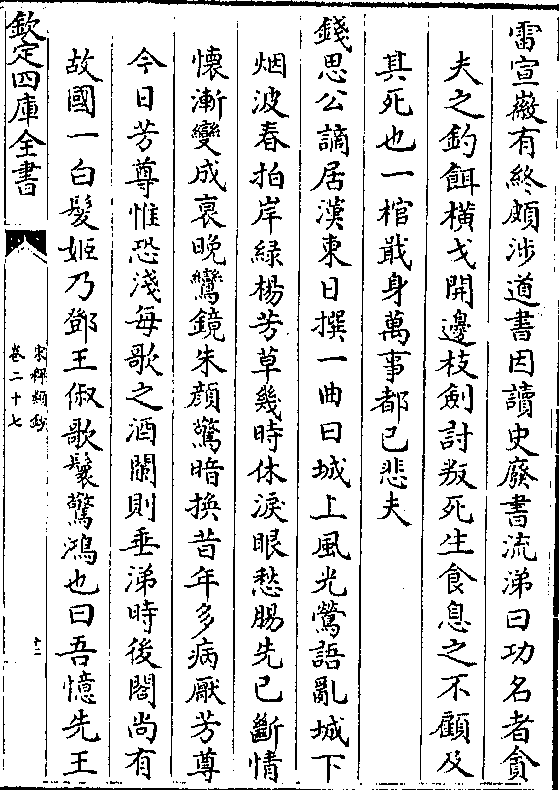 雷宣徽有終頗涉道書因讀史廢書流涕曰功名者貪
夫之釣餌橫戈開邊枝劍討叛死生食息之不顧及
其死也一棺戢身萬事都已悲夫
錢思公謫居漢東日撰一曲曰城上風光鶯語亂城下
烟波春拍岸綠楊芳草幾時休淚眼愁腸先已斷情
懷漸變成衰晚鸞鏡朱顔驚暗換昔年多病厭芳尊
今日芳尊惟恐淺每歌之酒闌則垂涕時後閤尚有
故國一白髮姬乃鄧王俶歌鬟驚鴻也曰吾憶先王
欽定四庫全書
宋稗類鈔
卷二十七
十二